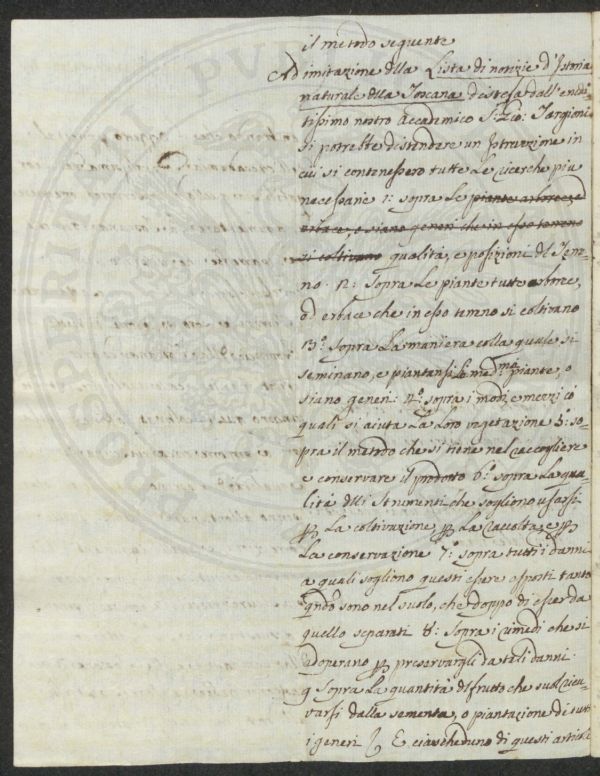 il metodo seguente
Ad imitazione dlla Lista di notizie d'Istoria
naturale dlla Toscana distesa dall'erudi-
tissimo nostro Accademico Targioni
si potrebbe distendere un Istruzione in
cui si contenessero tutte le ricerche piu
necessarie 1: sopra le piante arboree ed
erbacee, o siano generi che in esso terreno
si coltivano qualità, e posizioni del Terre-
no. 2: Sopra le piante tutte arboree,
od erbacee che in esso terreno si coltivano
3º Sopra la maniera colla quale si
seminano, e piantansi le medme piante, o
siano generi: 4º sopra i modi, e mezzi có
quali si aiuta la loro vegetazione 5º so-
pra il metodo che si tiene nel raccogliere
e conservare il prodotto 6º sopra la qua-
lità dlli Strumenti che sogliono usarsi
la coltivazione, la raccolta, e
la conservazione 7º sopra tutti i danni
a quali sogliono questi essere esposti tanto
qndo sono nel suolo, che doppo di esser da
quello separati 8: Sopra i rimedi che si
adoperano preservargli da tali danni:
9 Sopra la quantità di frutto che suol rica-
varsi dalla sementa, o piantazione di tutti
i generi E ciascheduno di questi articoli